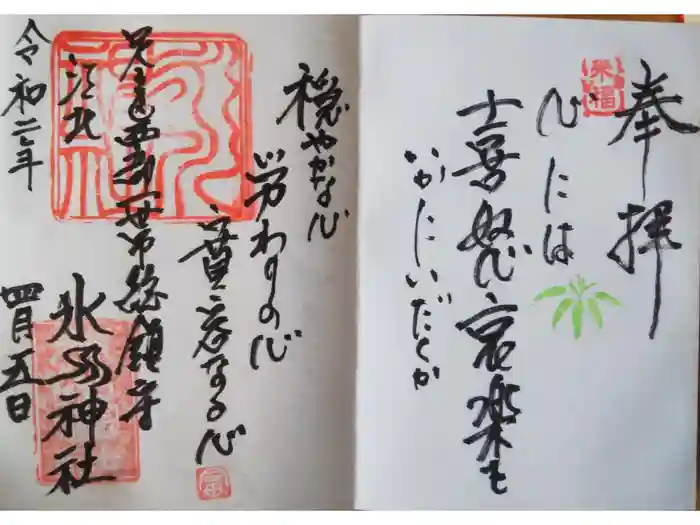 奉拝
来福
心には
喜怒哀楽も
いかにいだくか
穏やかな心
労わりの心
寛容なる心
児玉西部一帯総鎮守
氷川神社
四月五日
令和二年